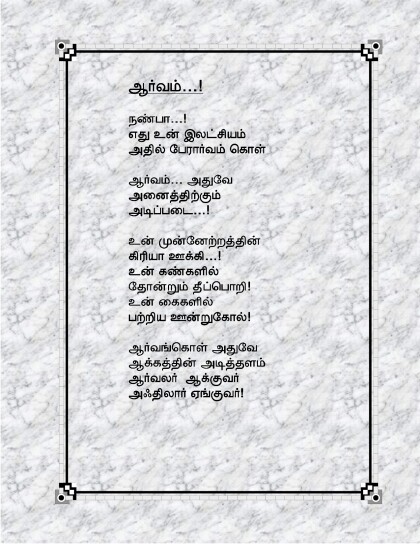 ஆர்வம்...!
நண்பா...!
எது உன் இலட்சியம்
அதில் பேரார்வம் கொள்
ஆர்வம்... அதுவே
அனைத்திற்கும்
அடிப்படை...!
உன் முன்னேற்றத்தின்
கிரியா ஊக்கி...!
உன் கண்களில்
தோன்றும் தீப்பொறி!
உன் கைகளில்
பற்றிய ஊன்றுகோல்!
ஆர்வங்கொள் அதுவே
ஆக்கத்தின் அடித்தளம்
ஆர்வலர் ஆக்குவர்
அஃதிலார் ஏங்குவர்!